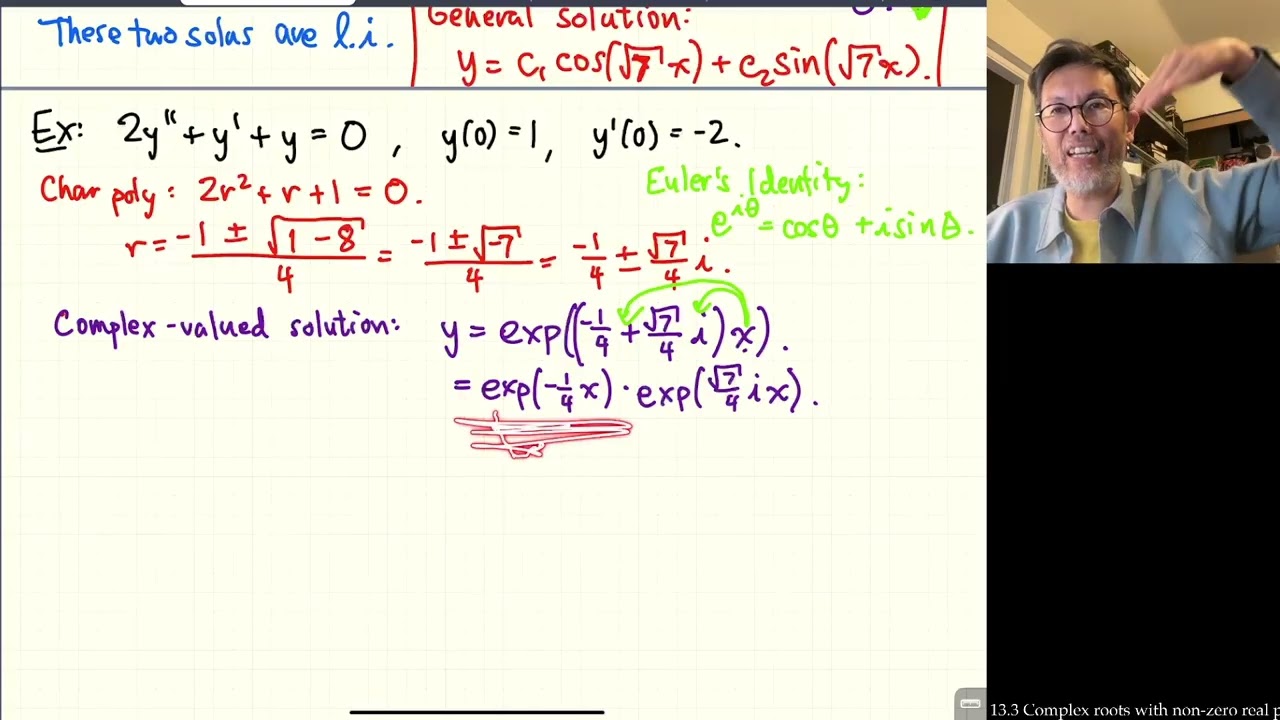 General solution:
These two solns are l.i.
y = c₁ cos(√7 x) + c₂ sin(√7 x).
Ex: 2y'' + y' + y = 0 , y(0) = 1, y'(0) = -2.
Char poly: 2r² + r + 1 = 0.
Euler's Identity:
e^{iθ} = cosθ + i sinθ.
r = (-1 ± √(1-8))/4 = (-1 ± √-7)/4 = -1/4 ± √7/4 i.
Complex-valued solution: y = exp((-1/4 + √7/4 i)x).
= exp(-1/4 x) · exp(√7/4 i x).
13.3 Complex roots with non-zero real p